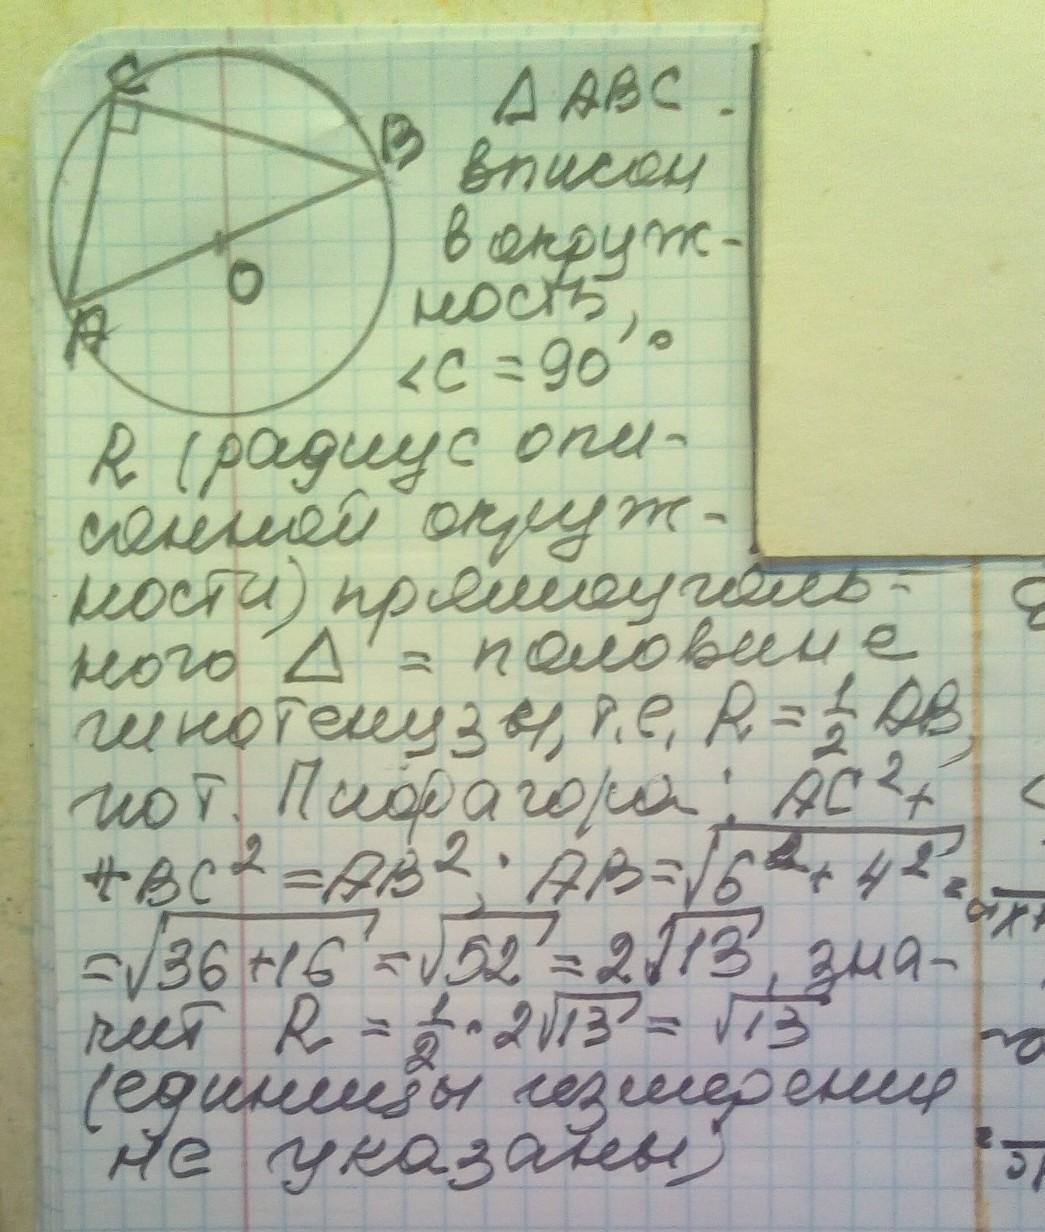 C
B
O
A
Δ ABC -
вписан
в окруж-
ность,
<C = 90°
R (радиус опи-
санной окруж-
ности) прямоуголь-
ного Δ = половине
гипотенузы, т.е. R = 1/2 AB,
по т. Пифагора: AC² +
+ BC² = AB²; AB = √6² + 4² =
= √36+16 = √52 = 2√13, зна-
чит R = 1/2 · 2√13 = √13
(единицы измерения
не указаны)